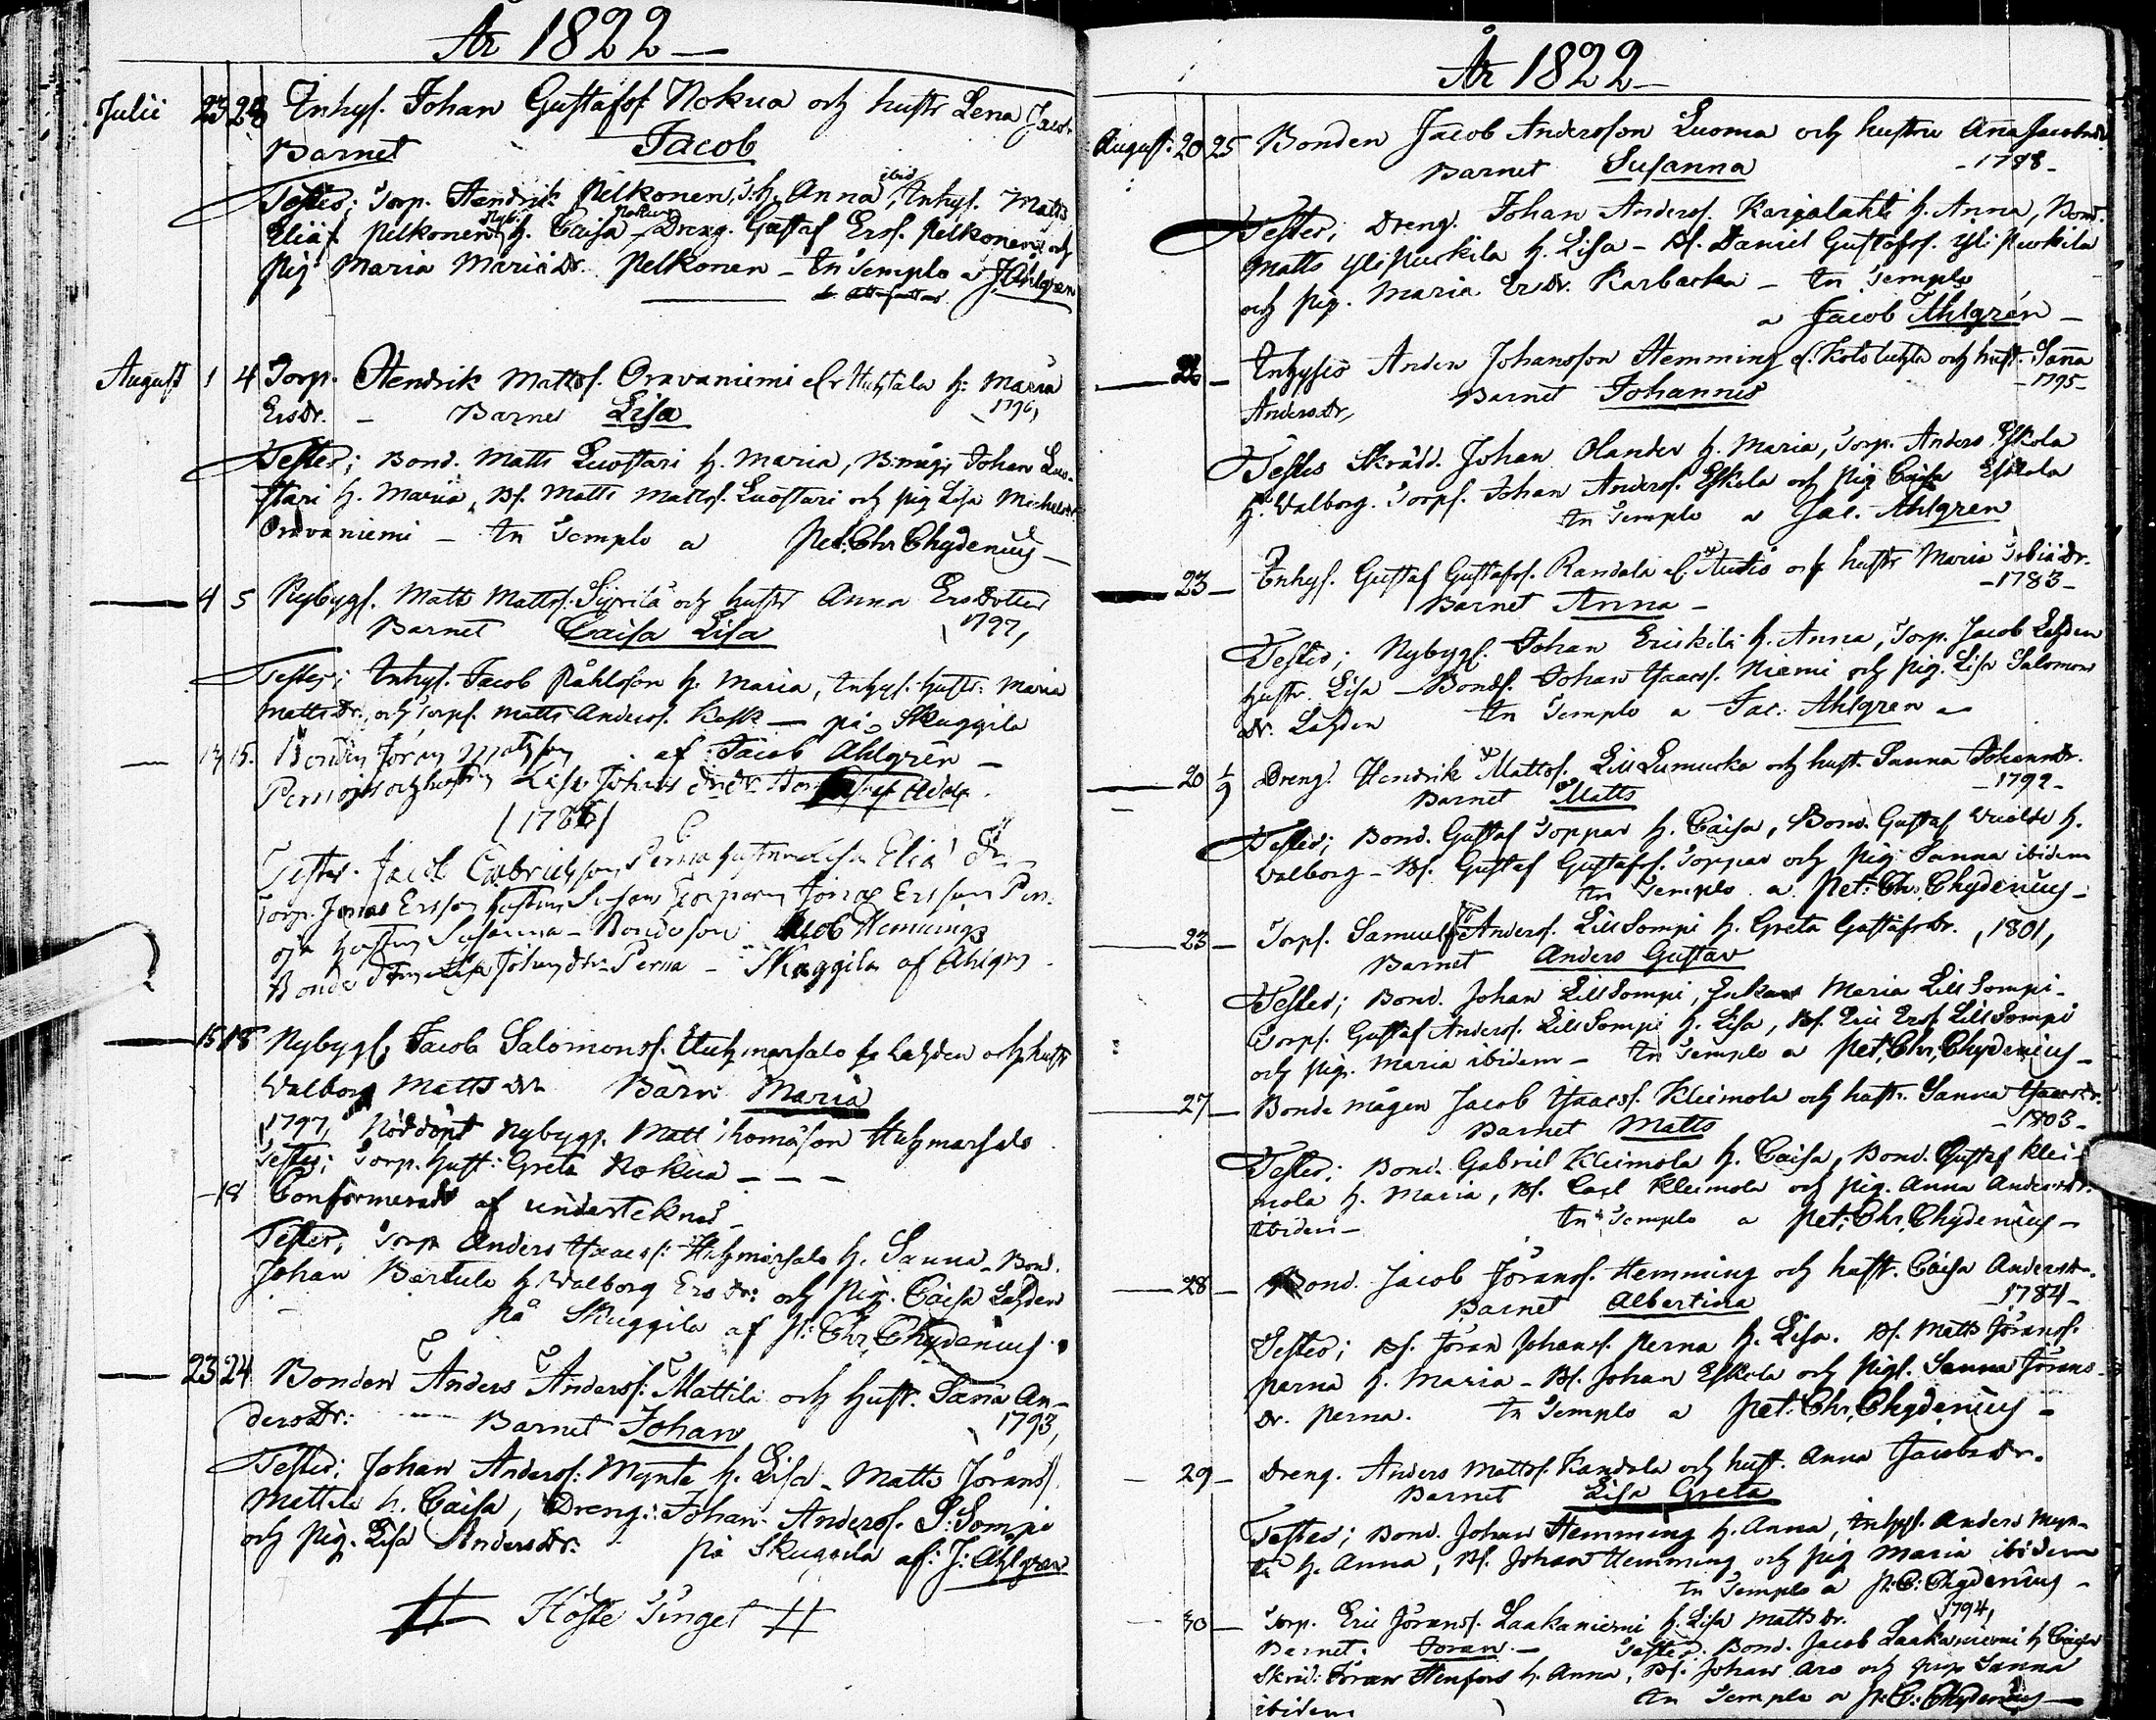 År 1822
Julii 23 28 Inhys. Johan Gustafsf. Nokua och hustr Lena Jacobs
Barnet Jacob
Testes; Torp. Hendrik Pelkonen, h. Anna ibid, Inhys. Matts
Eliæf. Pelkonen h. Caisa Nokua, Dreng. Gustaf Ersf. Pelkonen och
pig. Maria Mariædr. Pelkonen - In Templo a J. Ahlgren
August 1 4 Torp. Hendrik Mattsf. Oravaniemi el. Huhtala h: Maria
Ersdr. - Barnet Lisa 1796,
Testes; Bond. Matts Luostari h. Maria, B:måg Johan Luo-
stari h. Maria, Bs. Matts Mattsf. Luostari och pig Lisa Michelsdr
Oravaniemi - In Templo a Pet: Chr Chydenius -
4 5 Nybygs. Matts Mattsf. Syrilä och hustr Anna Ersdotter
Barnet Caisa Lisa 1797,
Testes; Inhys. Jacob Påhlsson h. Maria, Inhys. hustr: Maria
Mattsdr, och torps. Matts Andersf. Kesk - på Skuggila
af Jacob Ahlgren -
13 15. Bonden Jöran Mattsson
Pernoja och hustru Lisa Johans dr. Barn Gustaf Adolf.
(1786)
Testes. Jacob Gabrielsson Perna hustru Lisa Eliæ Dr
Torp. Jonas Ersson hustru Susanna Torparen Jonas Ersson Per-
oja hustru Susanna - Bondeson Jacob Hemming
Bonde dr Lisa Johansdtr. Perna - Skuggila af Ahlgren
15 18 Nybygs. Jacob Salomonsf. Huhmarsalo fr. Lahden och hustr
Walborg Mattsdr Barn: Maria
1797, Nöddöpt Nybygs. Matts Thomasson Huhmarsalo
Testes: Torp. hust: Greta Nokua - - -
-18 Confirmerad af underteknad -
Testes, Torp Anders Isaacsf: Huhmarsalo h. Sanna - Bond.
Johan Bertula h. Walborg Ersdr: och pig. Caisa Lahden
på Skuggila af P: Chr. Chydenius.
23 24 Bonden Anders Andersf: Mattila och hust. Sanna An-
dersdr: - - Barnet Johan 1793,
Testes; Johan Andersf: Mynte h. Lisa - Matts Jöransf.
Mattila h. Caisa, Dreng: Johan Andersf. L:Sompi
och pig. Lisa Andersdr. på Skuggila af: J: Ahlgren
# Höste Tinget #
År 1822
August: 20 25 Bonden Jacob Andersson Luoma och hustru Anna Jacobsdr
Barnet Susanna -1788-
Testes; Dreng. Johan Andersf. Karjalahti h. Anna, Bond.
Matts Ylipurkila h. Lisa - Bs. Daniel Gustafsf. Ylipurkila
och pig. Maria Ersdr. Karbacka - In Templo
a Jacob Ahlgren -
22 - Inhyses Anders Johansson Hemming el. Koto och hust. Sanna
Andersdr, Barnet Johannes -1795-
Testes Skrädd. Johan Olander h. Maria, Torp. Anders Eskola
h. Walborg. Torps. Johan Andersf. Eskola och pig Caisa Eskola
In Templo a Jac. Ahlgren
23 - Inhys. Gustaf Gustafsf. Randala el. Autio och hustr Maria Tobiædr.
Barnet Anna - -1783-
Testes; Nybygs. Johan Eriskilä h. Anna, Torp. Jacob Lahden
hustr. Lisa - Bonds. Johan Isaacsf. Niemi och pig. Lisa Salomons
dr. Lahden In Templo a Jac: Ahlgren -
20 1/9 Dreng. Hendrik Mattsf. Lill Lumucka och hust. Sanna Johansdr.
Barnet Matts -1792-
Testes; Bond. Gustaf Toppar h. Caisa, Bond. Gustaf h.
Walborg - Bs. Gustaf Gustafsf. Toppar och pig Sanna ibidem
In Templo a Pet: Chr. Chydenius -
23 - Torps. Samuel Andersf. LillSompi h. Greta Gustafsdr. ,1801,
Barnet Anders Gustav
Testes; Bond. Johan LillSompi, Enkan Maria LillSompi -
Torps. Gustaf Andersf. LillSompi h. Lisa, Bs. Eric Ersf. LillSompi
och pig. Maria ibidem - In Templo a Pet. Chr. Chydenius -
27 - Bonde mågen Jacob Isaacsf. Kleimola och hustr. Sanna Isaacsdr.
Barnet Matts -1803-
Testes; Bond. Gabriel Kleimola h. Caisa, Bond. Gustaf Klei-
mola h. Maria, Bs. Carl Kleimola och pig. Anna Andersdr.
ibidem - In Templo a Pet: Chr. Chydenius -
28 - Bond. Jacob Jöransf. Hemming och hust. Caisa Andersdr.
Barnet Albertina -1784-
Testes; Bs. Jöran Johansf. Perna h. Lisa. Bs. Matts Jöransf.
Perna h. Maria - Bs. Johan Eskola och pigs. Sanna Jörans-
dr. Perna. In Templo a Pet: Chr. Chydenius -
29 - Dreng. Anders Mattsf. Kandola och hust. Anna Jacobsdr.
Barnet Lisa Greta
Testes; Bond. Johan Hemming h. Anna, Inhys. Anders Myn-
ti h. Anna, Bs. Johan Hemming och pig Maria ibidem
In Templo a P: C: Chydenius -
30 - Torp. Eric Jöransf. Laakaniemi h. Lisa Mattsdr. 1794,
Barnet. Jöran. - Testes. Bond. Jacob Laakaniemi h Caisa
Skräd: Jöran Stenfors h. Anna, Bs. Johan Aro och pig Sanna
ibidem In Templo a P: C: Chydenius -